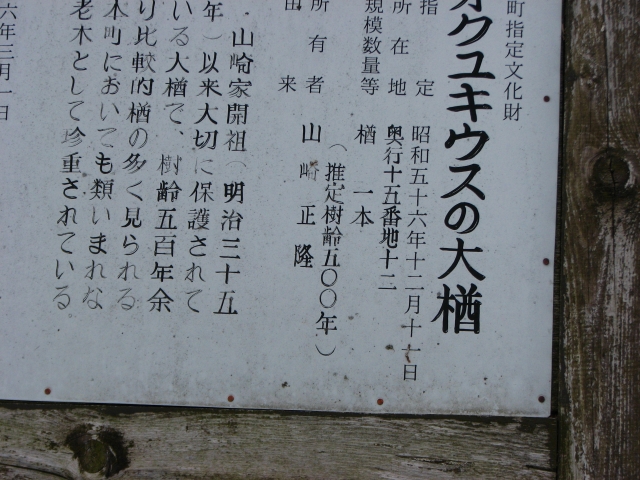 町指定文化財
オクユキウスの大楢
指定　昭和五十六年十二月十一日
所在地　奥行十五番地十二
規模数量等　楢　一本
（推定樹齢五〇〇年）
所有者　山崎正隆
由来
山崎家開祖（明治三十五
年）以来大切に保護されて
いる大楢で、樹齢五百年余
り比較的楢の多く見られる
木町においても類いまれな
老木として珍重されている
六年三月一日